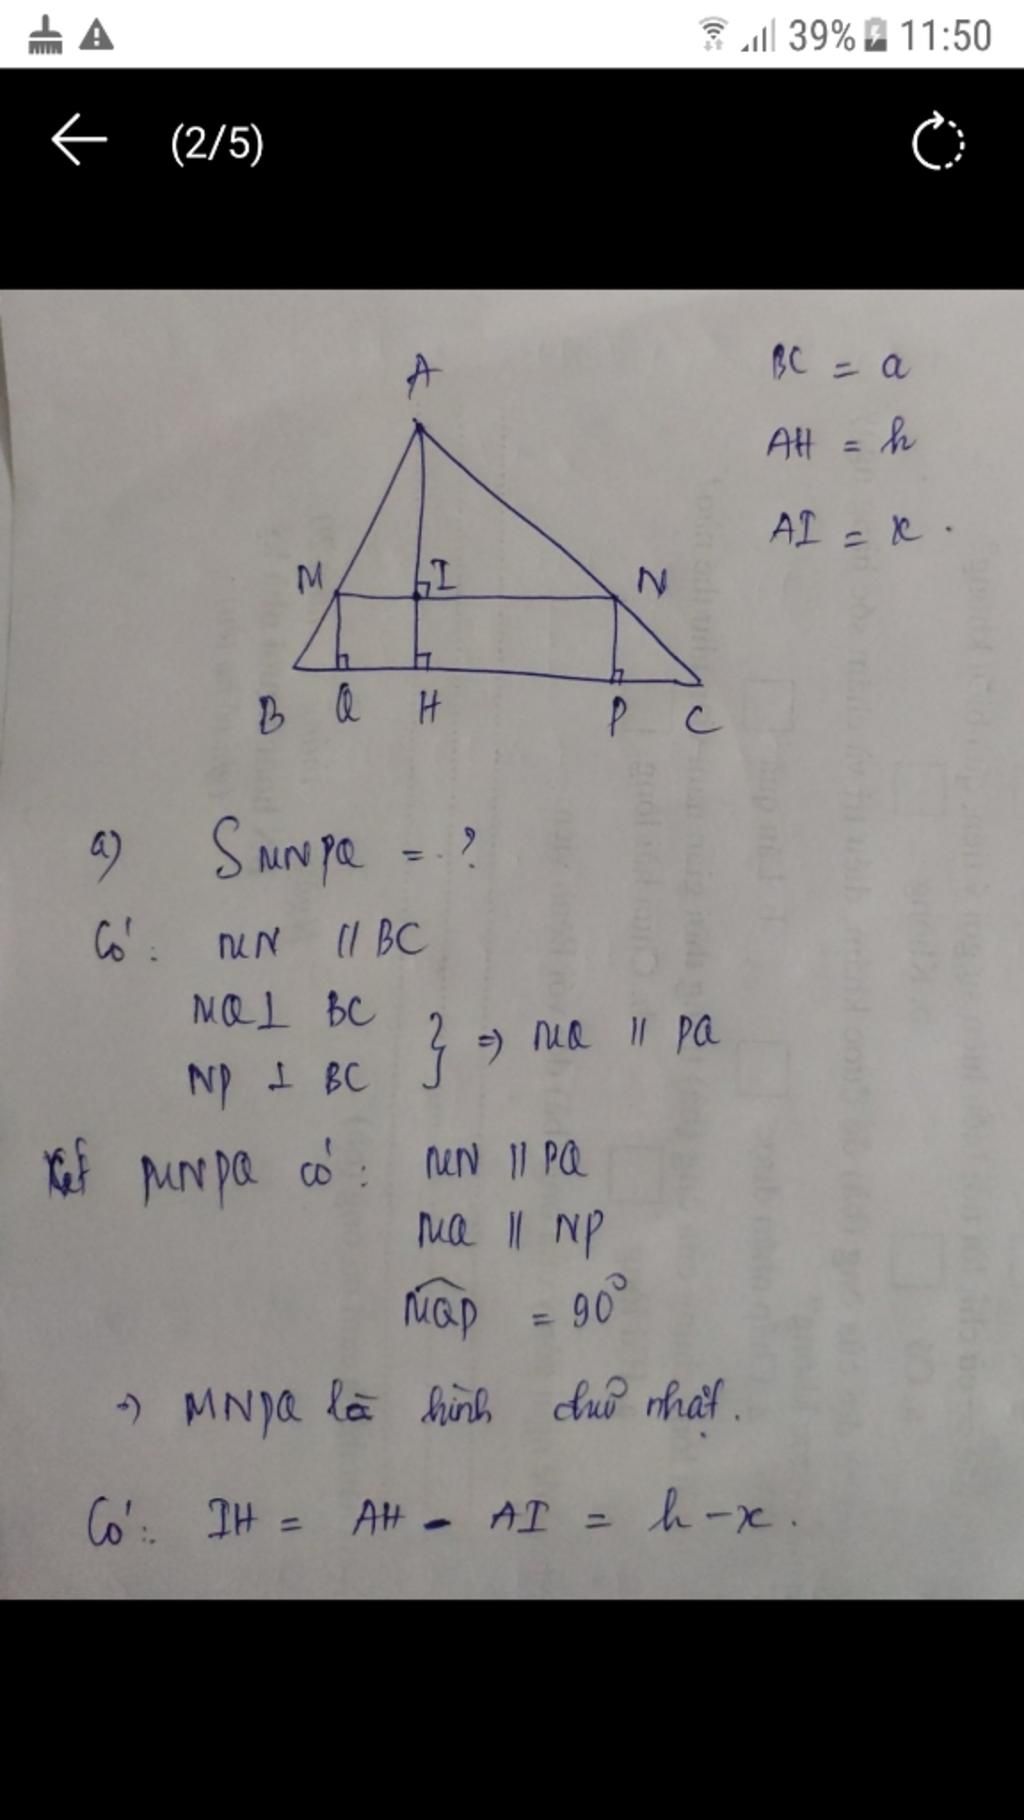 39% 11:50
(2/5)
A
BC = a
AH = h
AI = x.
M I N
B Q H P C
a) SMNPQ = ?
Có: MN // BC
MQ ⊥ BC
NP ⊥ BC } => MQ // PQ
Xét MNPQ có: MN // PQ
MQ // NP
MQP = 90°
=> MNPQ là hình chữ nhật.
Có: IH = AH - AI = h - x.